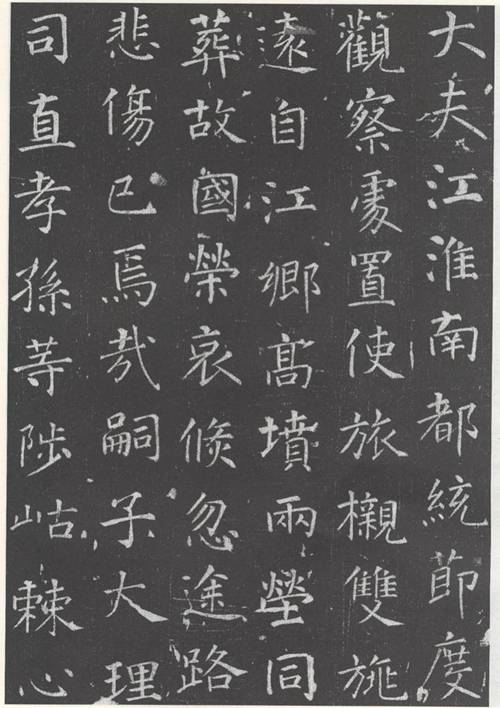 大夫江淮南都統節度
觀察處置使旅櫬雙旐
遠自江鄉髙墳兩塋同
葬故國榮哀倏忽途路
悲傷已焉哉嗣子大理
司直孝孫等陟岵棘心